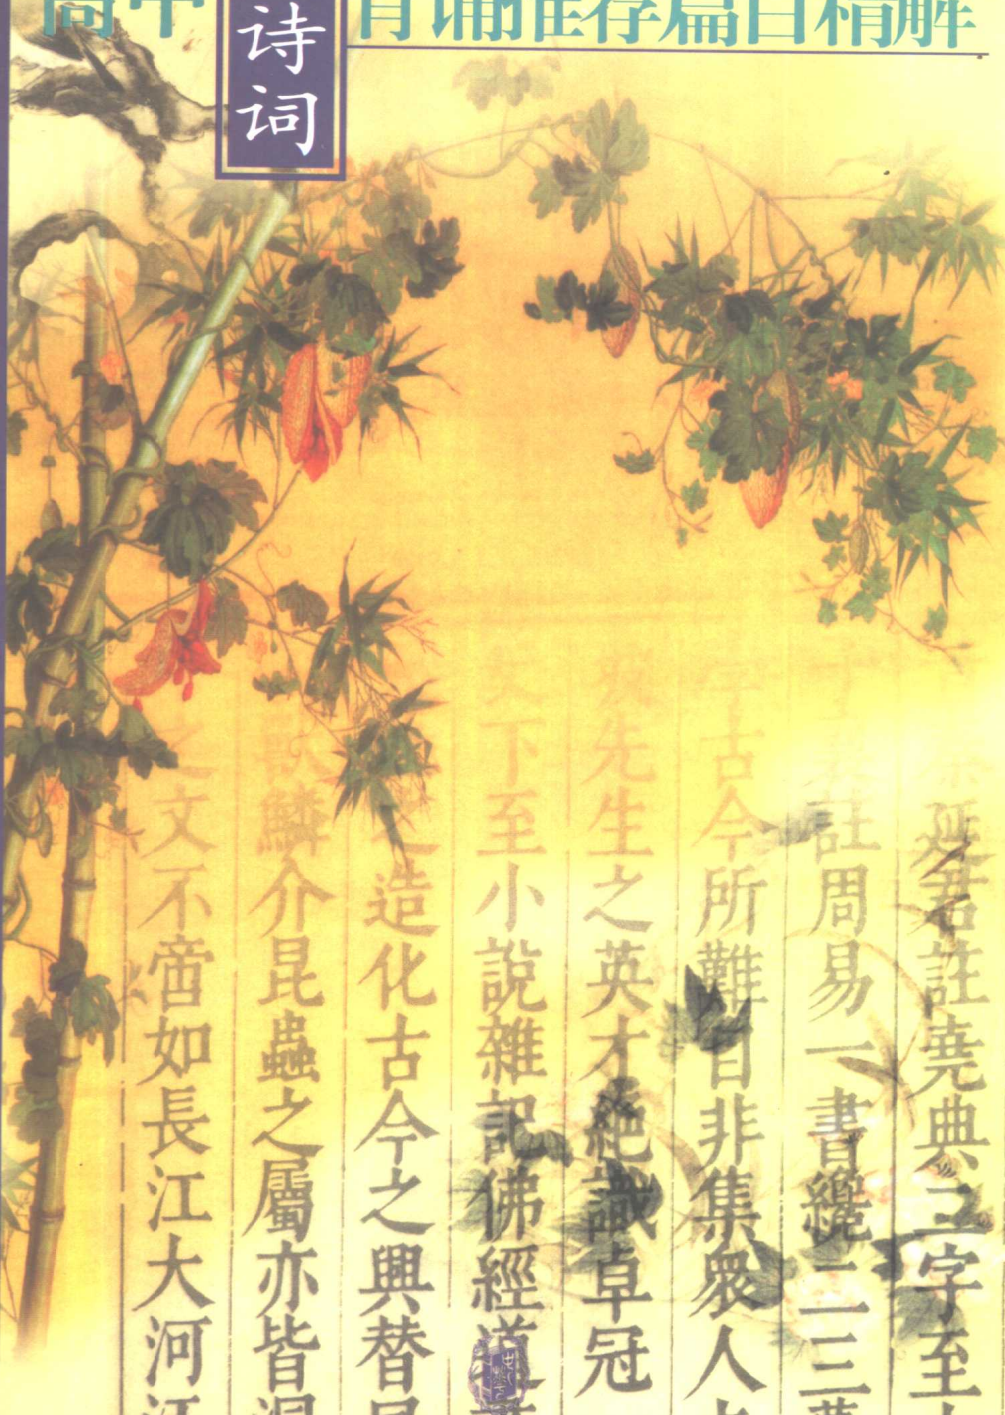 高中诗词背诵推荐篇目精解
延君註堯典二字至
註周易一書纔二三萬
字古今所難自非集衆人
先生之英才絶識卓冠
下至小說雜記佛經道
造化古今之興替
獸鱗介昆蟲之屬亦皆
之文不啻如長江大河江